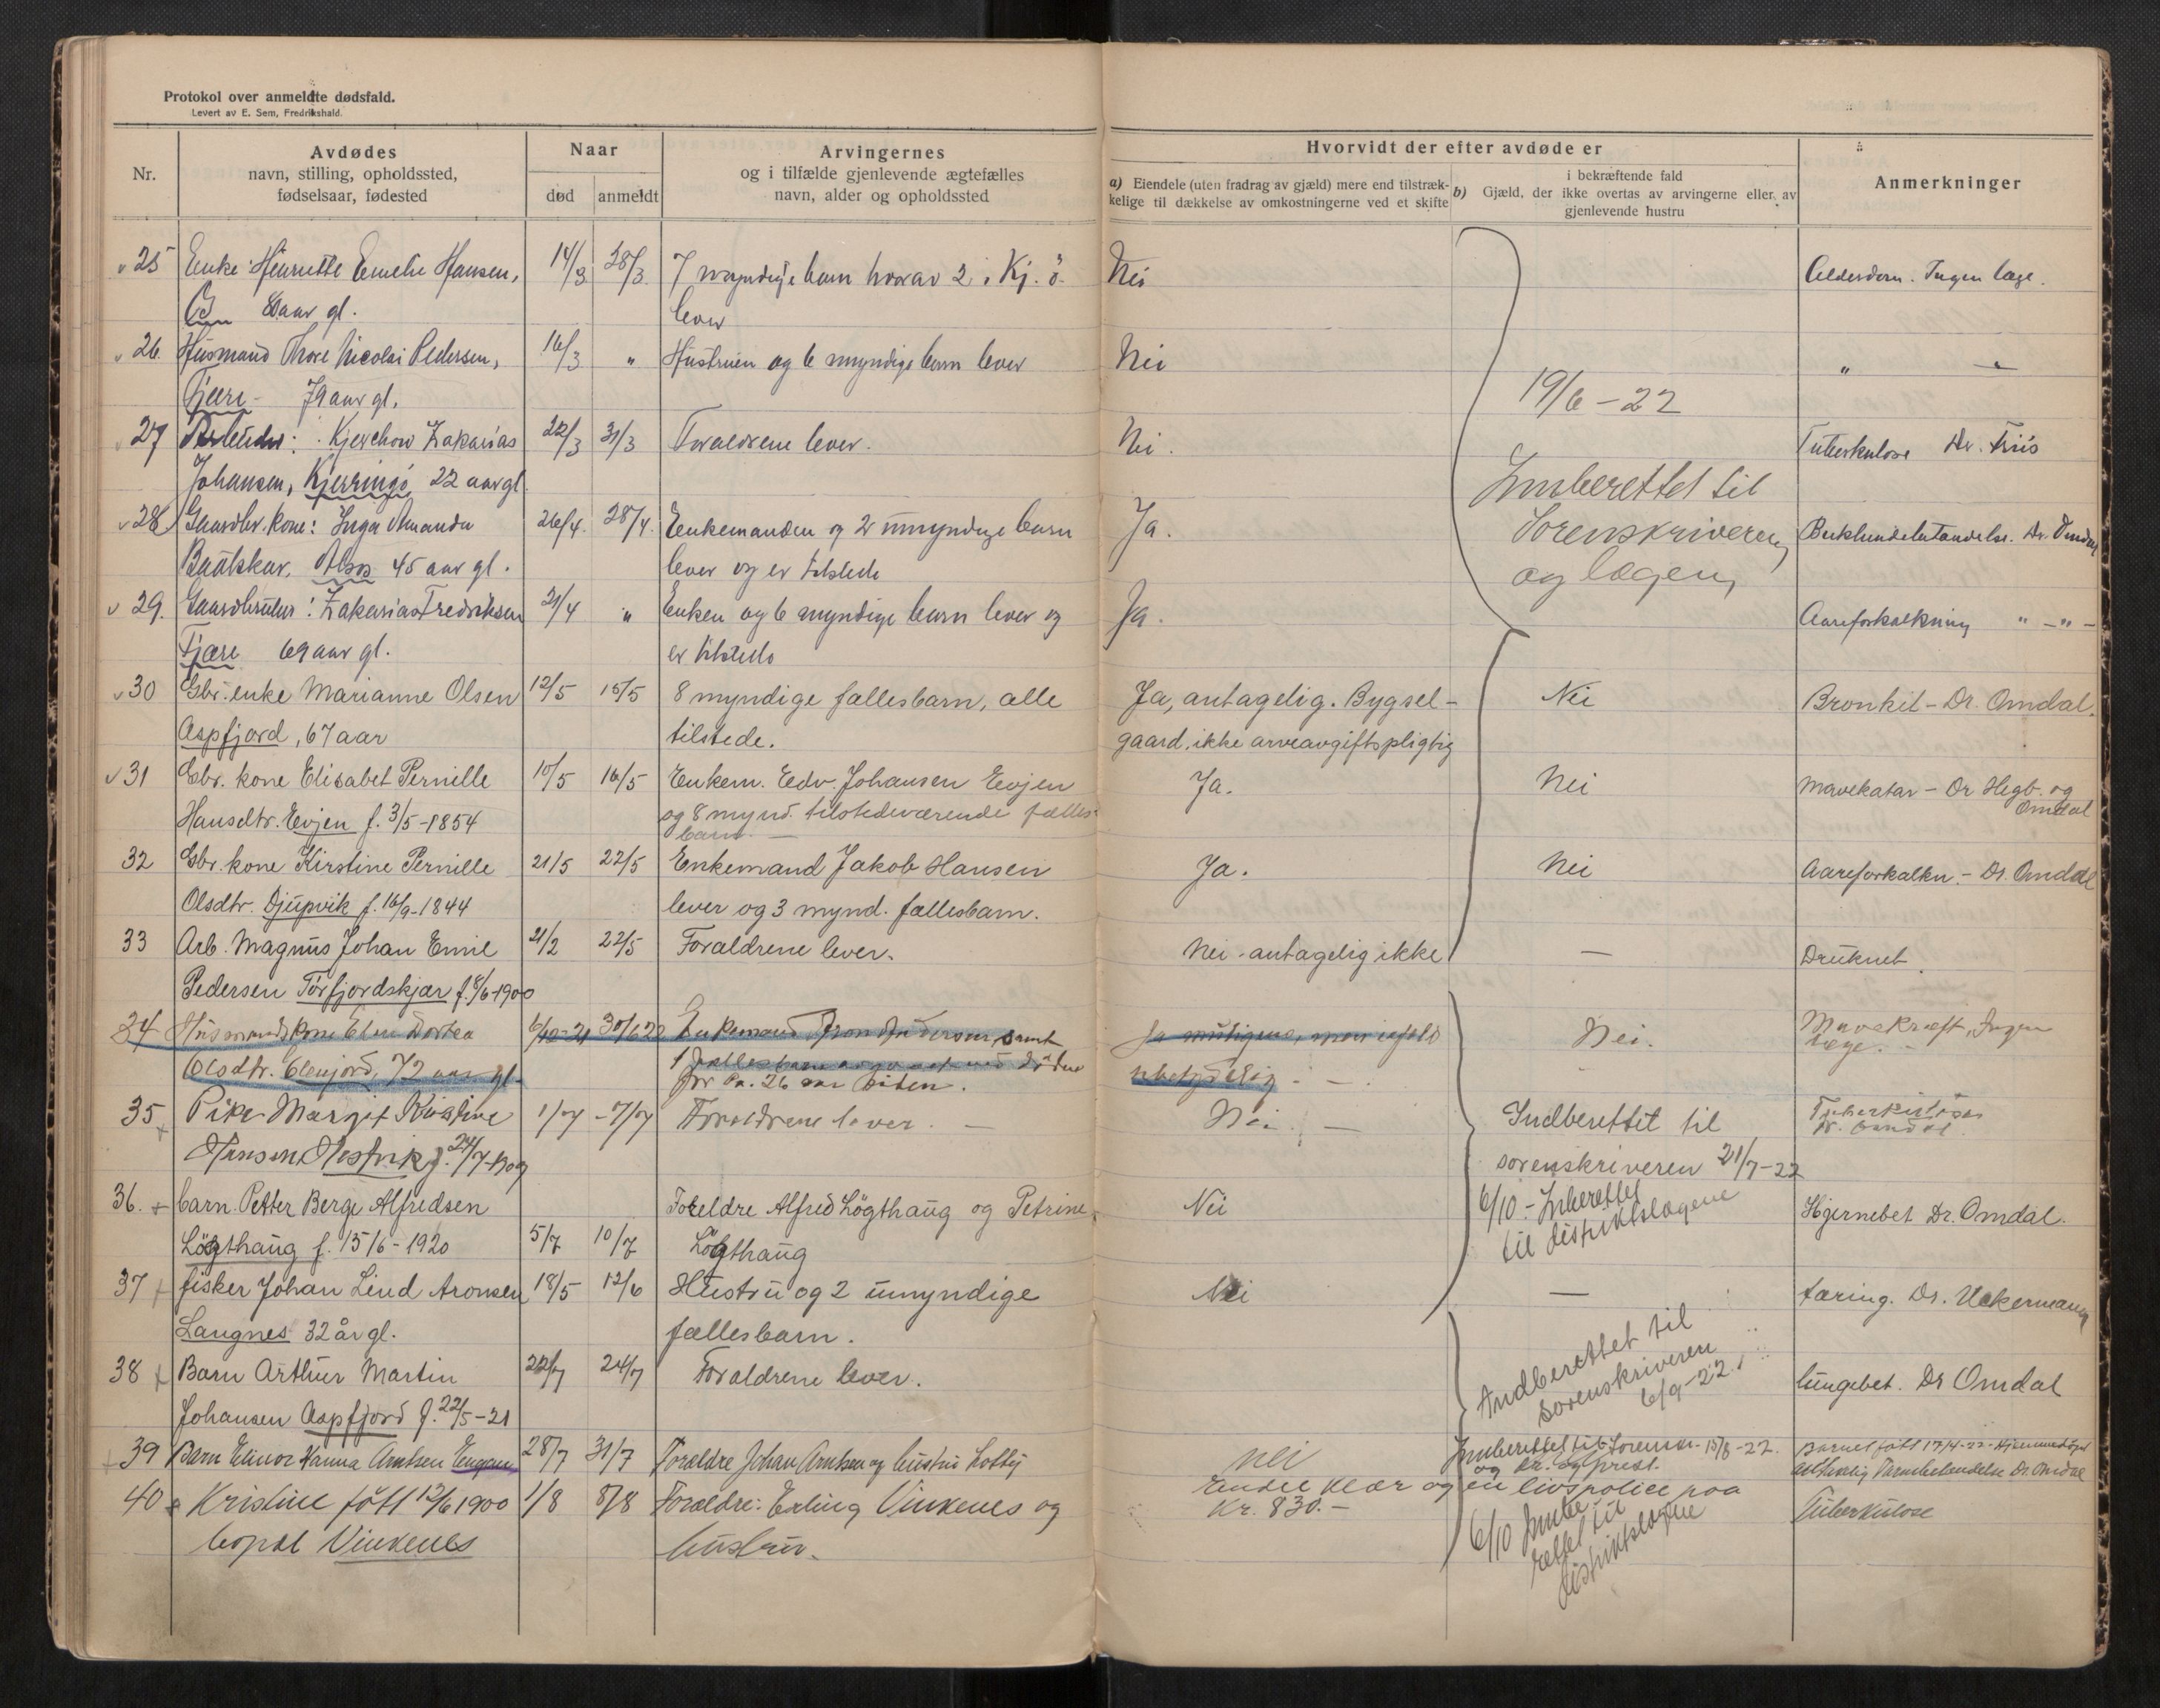 Protokol over anmeldte dødsfald.
Levert av E. Sem, Fredrikshald.
Nr.
Avdødes
navn, stilling, opholdssted,
fødselsaar, fødested
Naar
død
anmeldt
Arvingernes
og i tilfælde gjenlevende ægtefælles
navn, alder og opholdssted
Hvorvidt der efter avdøde er
a) Eiendele (uten fradrag av gjæld) mere end tilstræk-
kelige til dækkelse av omkostningerne ved et skifte
i bekræftende fald
b) Gjæld, der ikke overtas av arvingerne eller av
gjenlevende hustru
Anmerkninger
25 Enke: Henriette Emelie Hansen, 14/3 28/3 7 myndige barn hvorav 2 i Kj. ö. Nei Alderdom. Ingen læge.
80 aar gl. lever
26. Husmand Thore Nicolai Pedersen, 16/3 " Hustruen og 6 myndige barn lever Nei " "
Fjære - 79 aar gl. 19/6 - 22
27 Arbeider: Kjerchow Zakarias 22/3 31/3 Forældrene lever. Nei. Tuberkulose Dr. Friis
Johansen, Kjerringö 22 aar gl. Innberettet til
28 Gaardbr. kone: Inga Amanda 26/4. 28/4. Enkemanden og 2 umyndige barn Ja. Sorenskriveren Buklindebetændelse. Dr. Omdal
Baatskar, Alsos 45 aar gl. lever og er tilstede og lægen,
29. Gaardbruker: Zakarias Fredriksen 21/4 " Enken og 6 myndige barn lever og Ja. Aareforkalkning " - " -
Fjære 69 aar gl. er tilstede
30 Gbr. enke Marianne Olsen 12/5 15/5 8 myndige fællesbarn, alle Ja, antagelig. Bygsel- Nei Bronkit - Dr. Omdal.
Aspfjord, 67 aar tilstede. gaard, ikke arveavgiftspligtig
31 Gbr. kone Elisabet Pernille 10/5 16/5 Enkem. Edv. Johansen Evjen Ja. Nei Mavekatar - Dr Hegb. og
Hansdtr. Evjen f. 3/5-1854 og 8 mynd. tilstedeværende fælles- Omdal
barn. -
32 Gbr. kone Kirstine Pernille 21/5 22/5 Enkemand Jakob Hansen Ja. Nei Aareforkalkn. - Dr. Omdal
Olsdtr. Djupvik f. 16/9-1844 lever og 3 mynd. fællesbarn.
33 Arb. Magnus Johan Emil 21/2 22/5 Forældrene lever. Nei - antagelig ikke - Druknet.
Pedersen Törfjordskjær f. 8/6-1900
34 Husmands kone Elen Dortea 6/12-21 30/6 22 Enkemand Aron Andersen, samt Nei. Mavekræft, Ingen
Olsdtr. 72 aar gl. læge.
for Ca. 26 aar siden.
35 Pike Margit Kristine 1/7 - 7/7 Forældrene lever. - Nei. - Indberettet til Tuberkulose
Hansen f. 24/7- sorenskriveren 21/7-22 Dr. Omdal.
36. barn. Petter Berge Alfredsen Foreldre Alfred Lögthaug og Petrine Nei 6/10 - Inberettet Hjernebet. Dr. Omdal.
Lögthaug f. 15/6-1920 5/7 10/7 Lögthaug til distriktslægene
37 fisker Johan Lind Aronsen 18/5 12/6 Hustru og 2 umyndige Nei - tæring. Dr. Uckermann
Langnes 32 år gl. fællesbarn.
38 Barn Arthur Martin 22/7 24/7 Forældrene lever. Indberettet til lungebet. Dr Omdal
Johansen Aspfjord f. 22/5-21 sorenskriveren 6/9-22.
39 Barn Elinor Hanna Arntsen 28/7 31/7 Forældre Johan Arntsen og hustru Nei Innberettet til Sorenskr. 15/8-22. Barnet födt 17/4-22 -
og Dr. og prest. Tarmbetendelse Dr. Omdal
40 Kristine födt 12/6 1900 1/8 8/8 Forældre: Erling Vinkenes og Endel klær og en livspolice paa Tuberkulose
bopæl Vinkenes hustru. Kr. 830.- 6/10 Innbe-
rettet til
distriktslægene